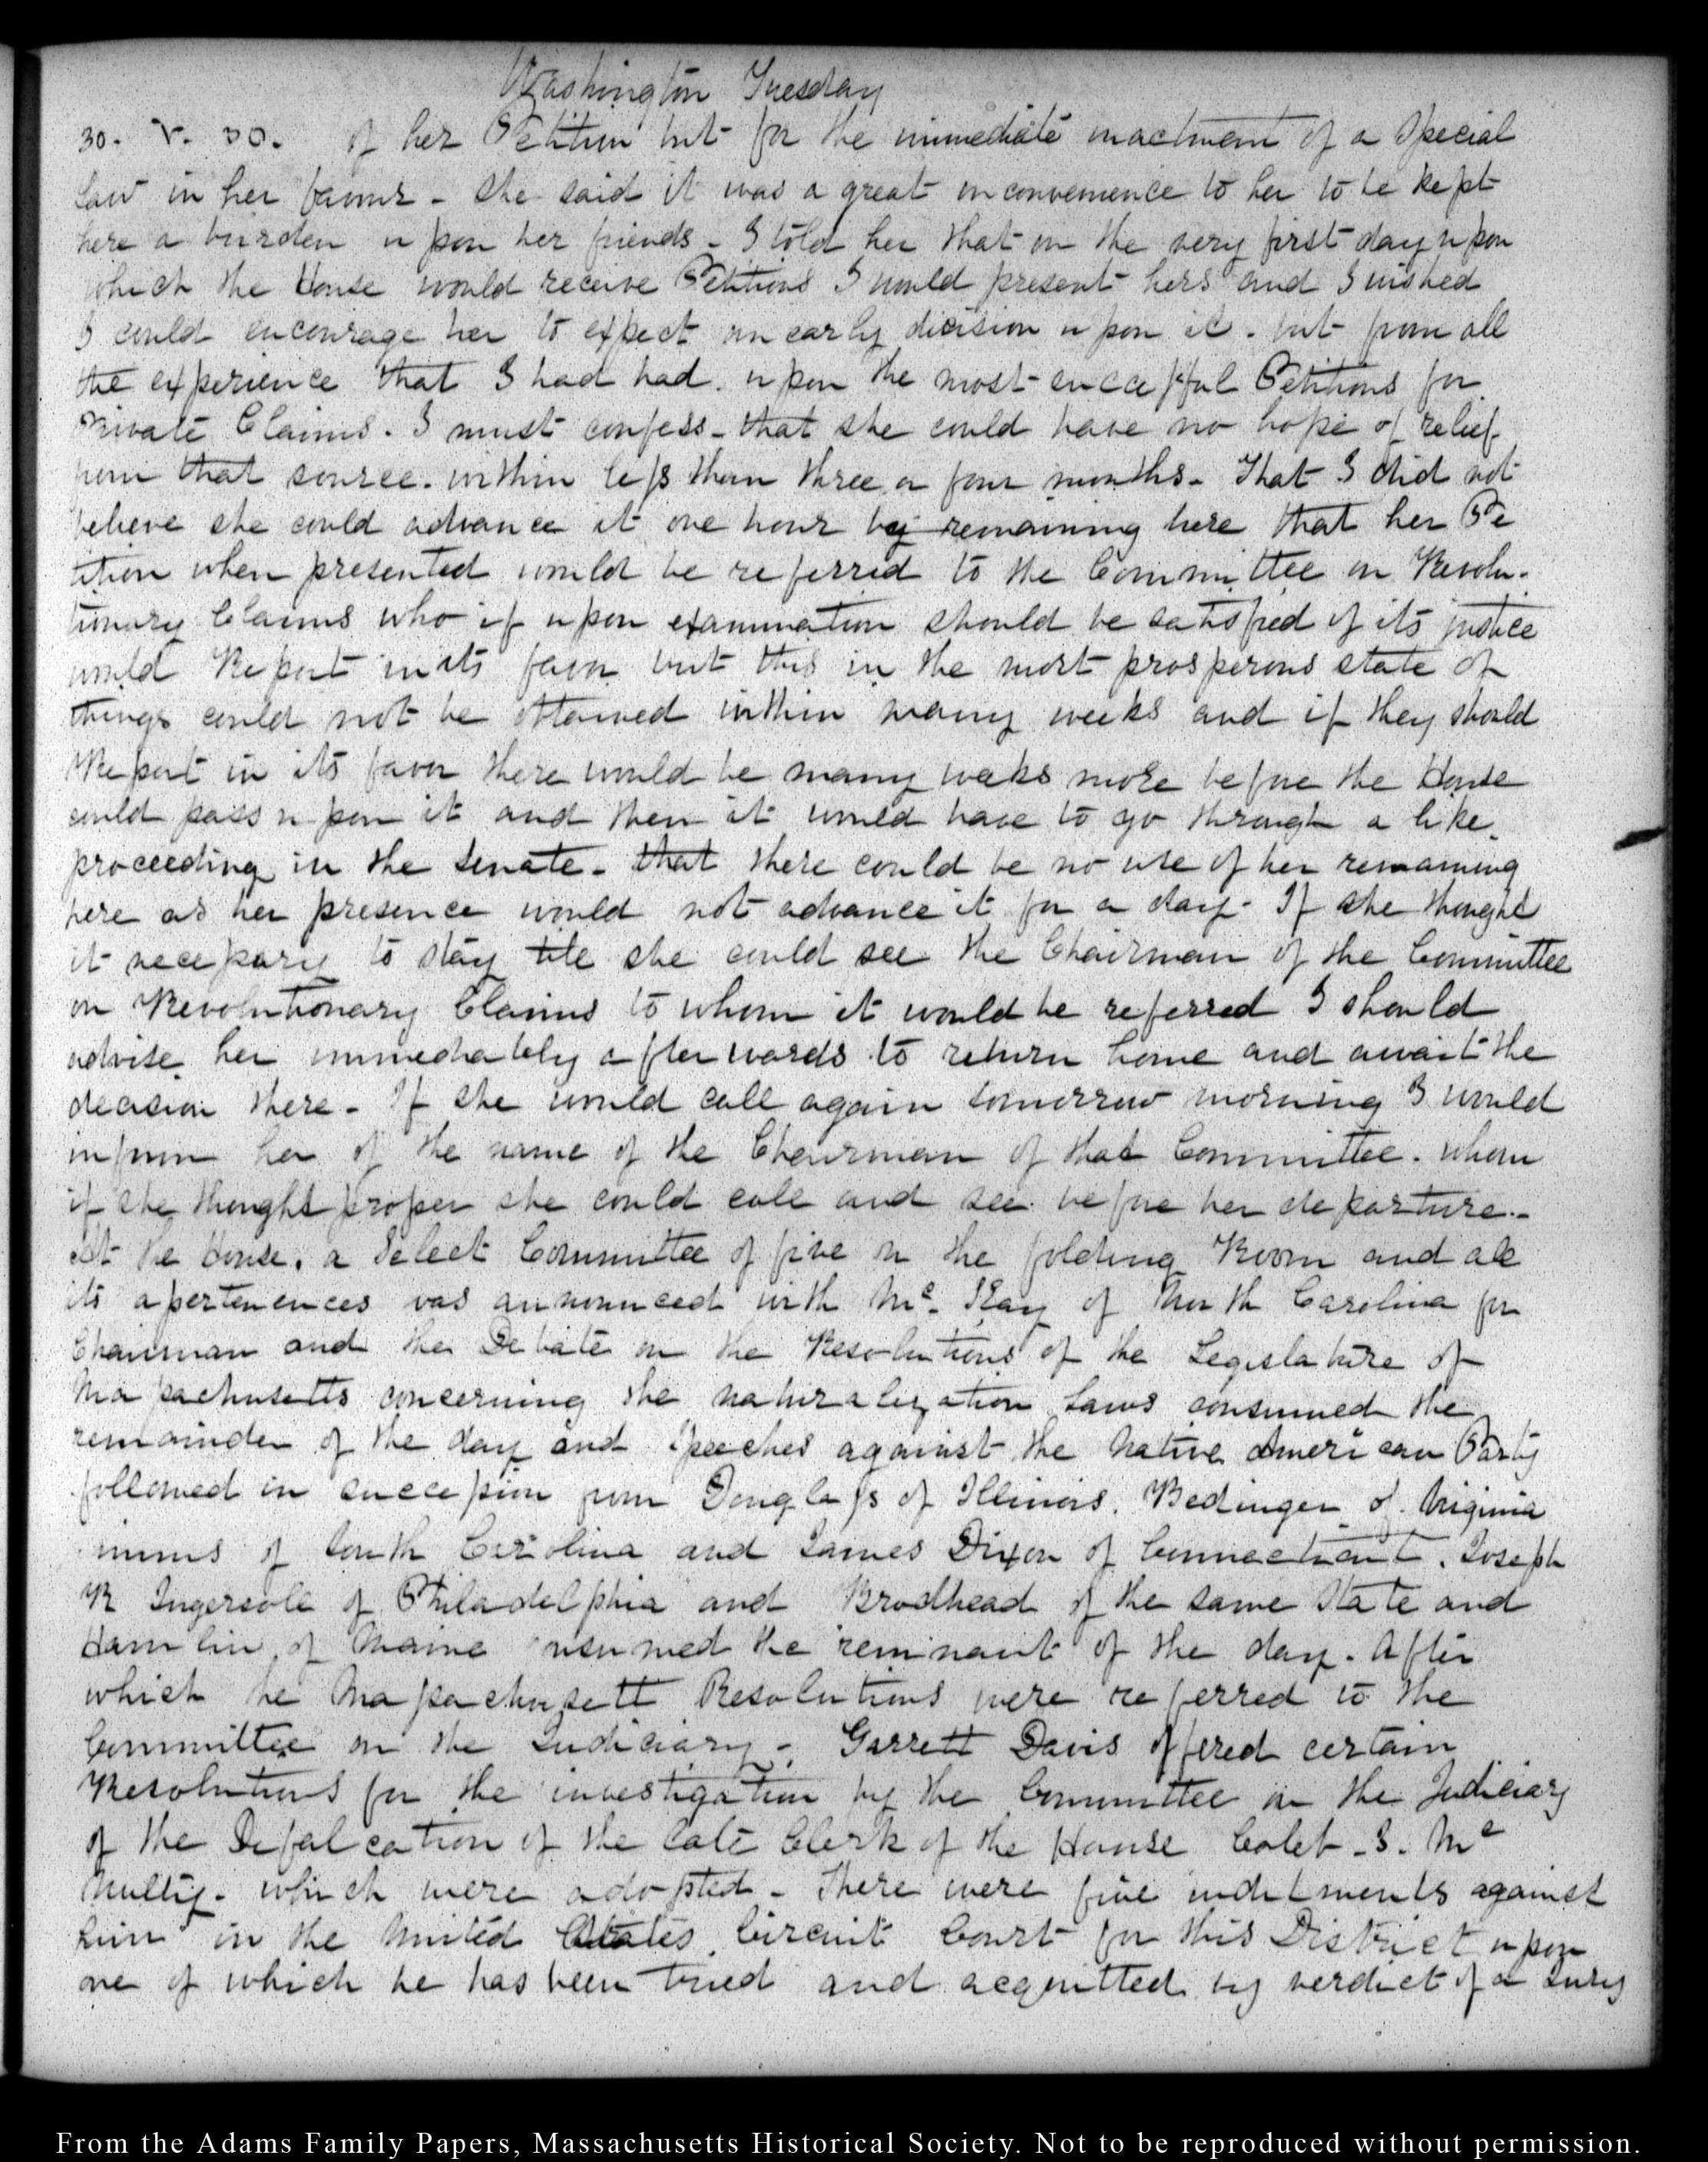 Washington Tuesday
30. V. 30. of her Petition but for the immediate enactment of a Special
law in her favour - She said it was a great inconvenience to her to be kept
here a burden upon her friends - I told her that on the very first day upon
which the House would receive Petitions I would present hers and I wished
I could encourage her to expect an early decision upon it. but from all
the experience that I had had. upon the most successful Petitions for
Private Claims. I must confess - that she could have no hope of relief
from that source. within less than three or four months - That I did not
believe she could advance it one hour by remaining here that her Pe
tition when presented would be referred to the Committee on Revolu-
tionary Claims who if upon examination should be satisfied of its justice
would Report in its favor but this in the most prosperous state of
things could not be attained within many weeks and if they should
Report in its favor there would be many weeks more before the House
could pass upon it and then it would have to go through a like
proceeding in the Senate - that there could be no use of her remaining
here as her presence would not advance it for a day - If she thought
it necessary to stay till she could see the Chairman of the Committee
on Revolutionary Claims to whom it would be referred I should
advise her immediately afterwards to return home and await the
decision there - If she would call again tomorrow morning I would
inform her of the name of the Chairman of that Committee. whom
if she thought proper she could call and see before her departure. -
At the House. a Select Committee of five on the folding Room and all
its apertenences was announced with Mc. Kay of North Carolina for
Chairman and the Debate on the Resolutions of the Legislature of
Massachusetts concerning the naturalization Laws consumed the
remainder of the day and Speeches against the Native American Party
followed in succession from Douglass of Illinois. Bedinger of Virginia
imms of South Carolina and James Dixon of Connecticut. Joseph
R Ingersoll of Philadelphia and Brodhead of the same State and
Hamlin of Maine consumed the remnant of the day. After
which the Massachusett Resolutions were referred to the
Committee on the Judiciary - Garrett Davis offered certain
Resolutions for the investigation by the Committee on the Judiciary
of the Defalcation of the late Clerk of the House Caleb - J. Mc
Nulty - which were adopted - There were five inditments against
him in the United States Circuit Court for this District upon
one of which he has been tried and acquitted by verdict of a Jury
From the Adams Family Papers, Massachusetts Historical Society. Not to be reproduced without permission.